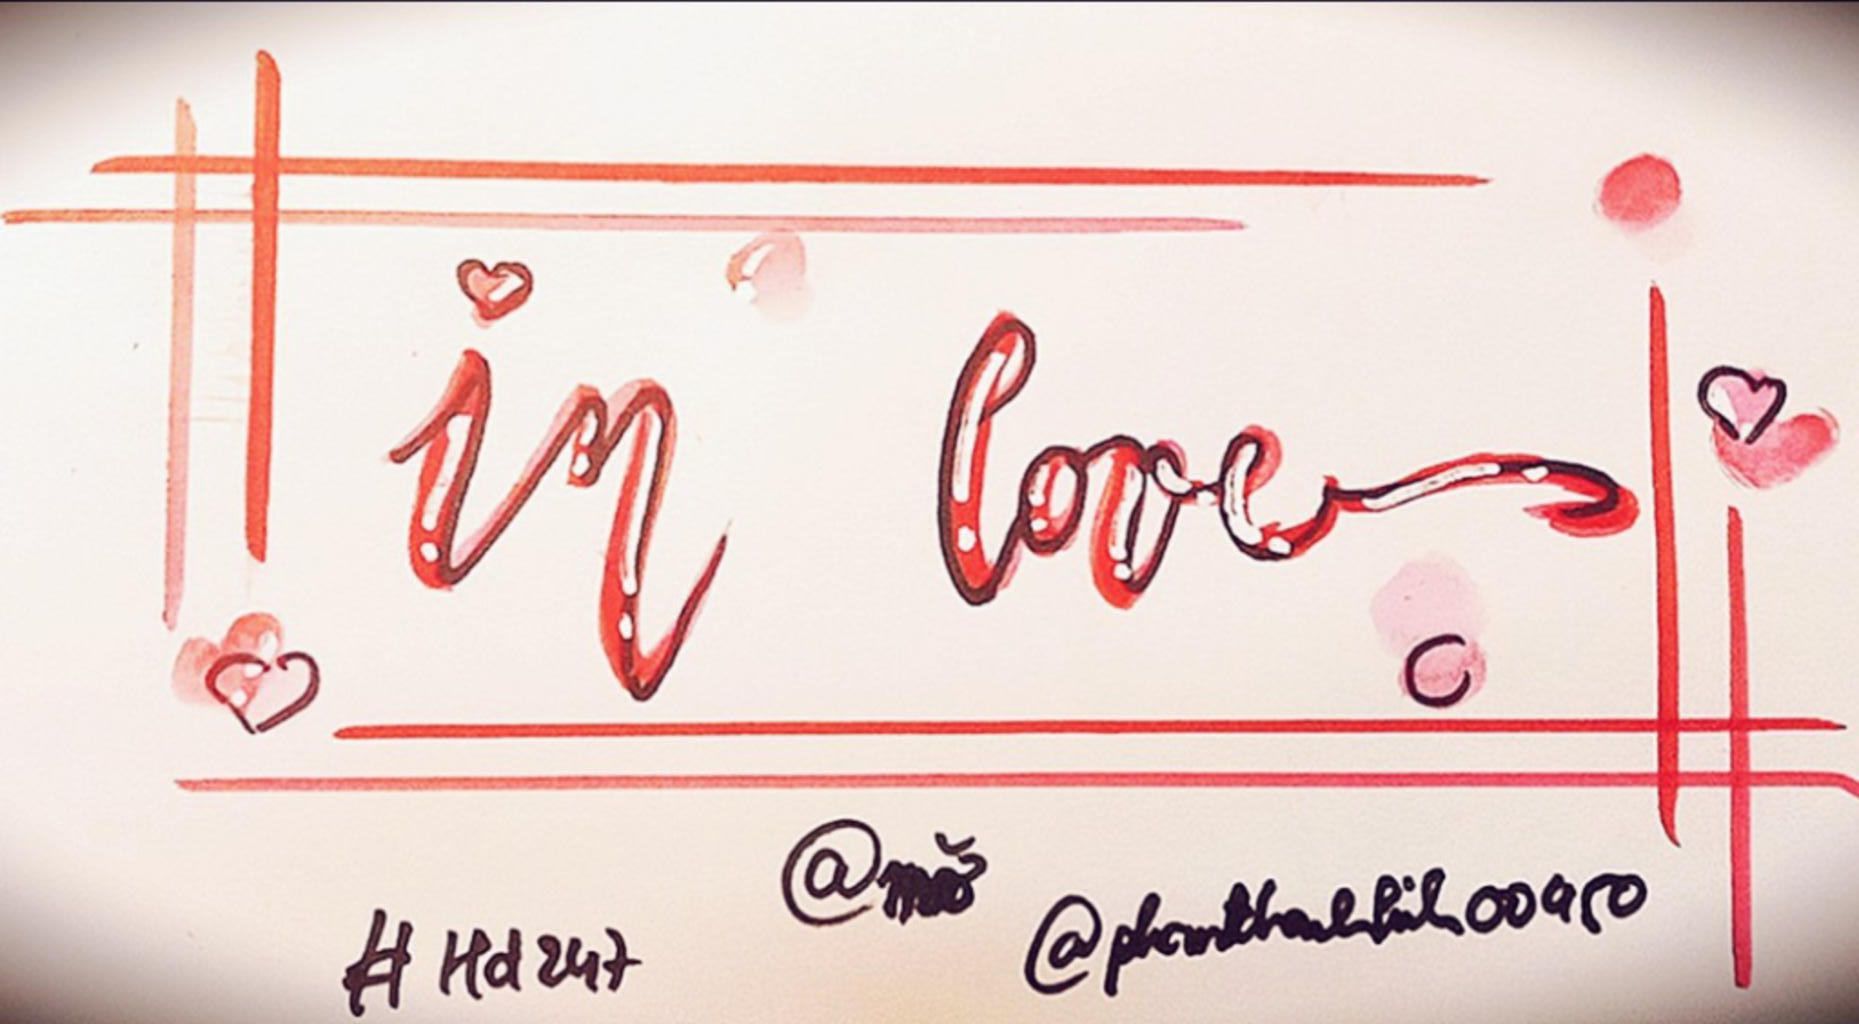 in love
@mão
# Hd247
@phamkhanhlinh00950